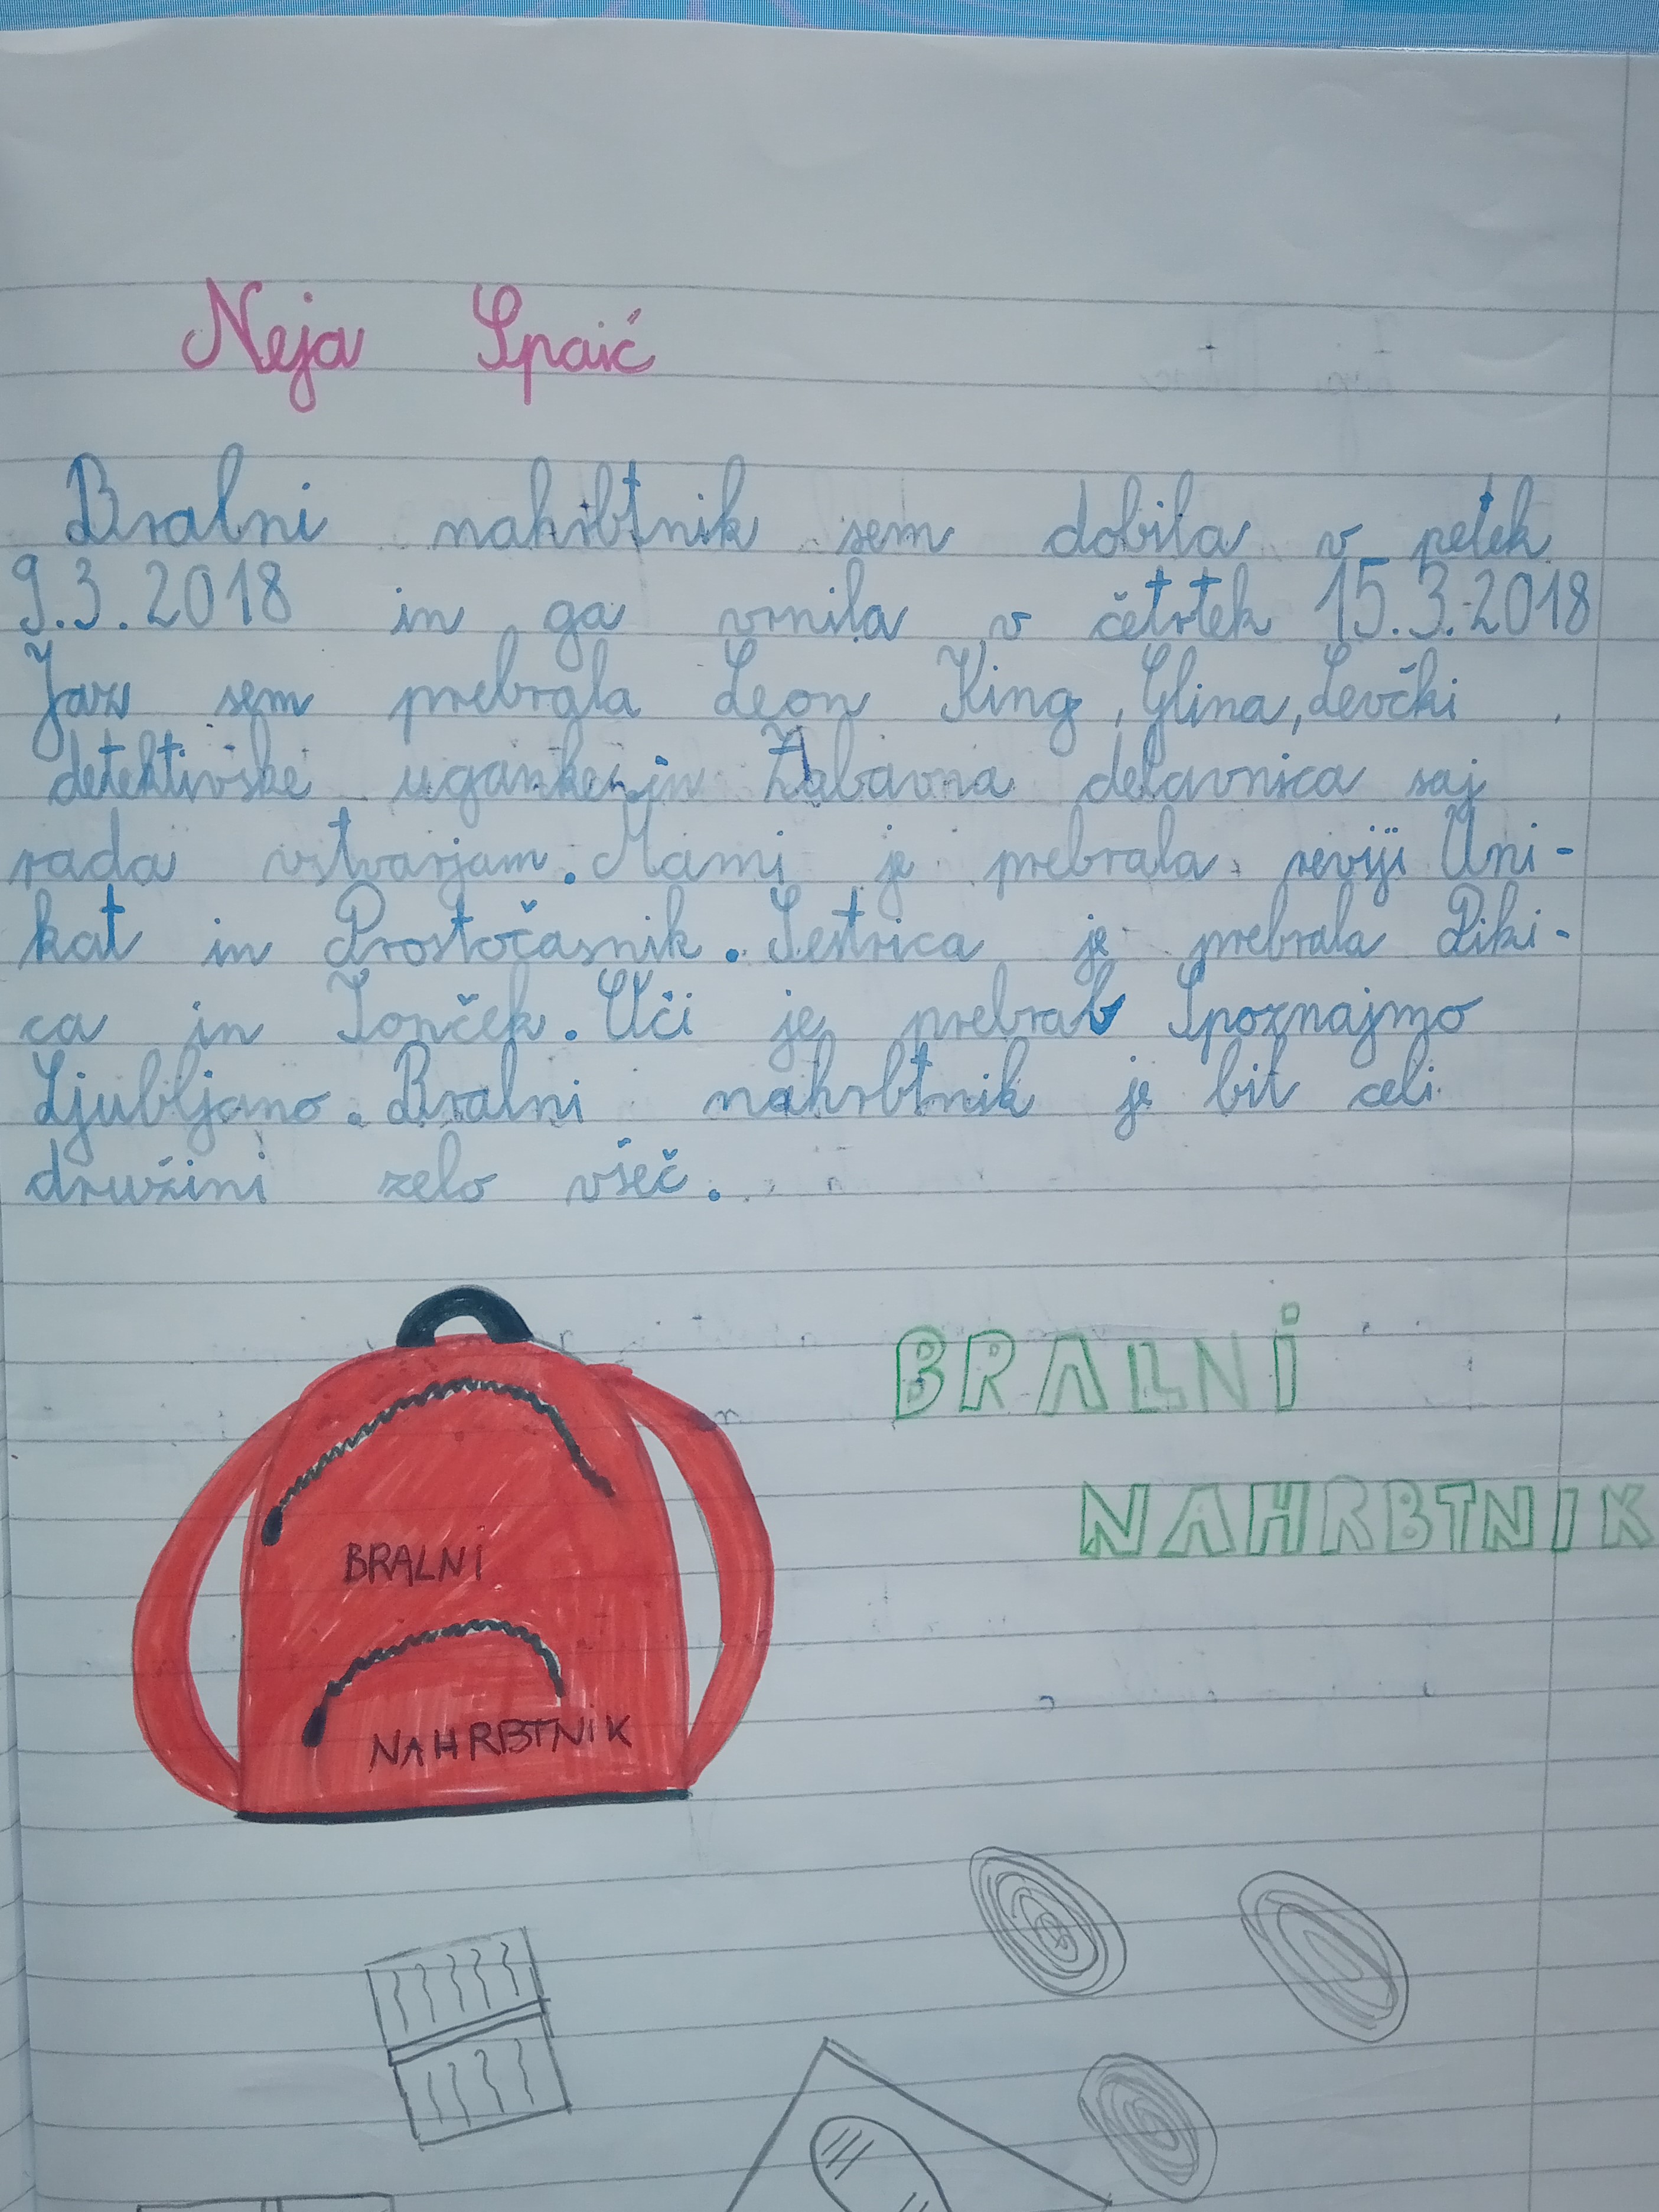 Neja Spaić
Bralni nahrbtnik sem dobila v petek
9.3.2018 in ga vrnila v četrtek 15.3.2018
Jaz sem prebrala Leon King, Glina, Levčki
detektivske uganke in Zabavna delavnica saj
rada ustvarjam. Mami je prebrala reviji Uni-
kat in Prostočasnik. Sestrica je prebrala Piki-
ca in Tonček. Oči je prebral Spoznajmo
Ljubljano. Bralni nahrbtnik je bil celi
družini zelo všeč.
BRALNI
NAHRBTNIK
BRALNI
NAHRBTNIK